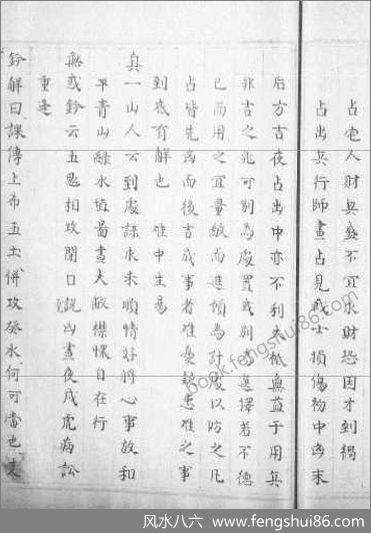 占宅人財興盛不宜求財恐因才到禍
占出兵行師晝占見我小損傷物中凶末
后方吉夜占出中亦不利大抵無益于用兵
非吉之兆可別為處置或別時選擇若不德
已而用之宜量敵而進預為計慮以防之凡
占皆先凶而後吉或事者難憂疑患难之事
到底有解也 难中生易
真一山人云到處謀求未順情好將心事放和
平青山綠水堪圖畫大敞襟懷自在行
無惑鈐云五鬼相攻開口說凶晝夜戌虎病訟
重逢
鈐解曰課傳上布五土併攻癸水何可當也
book.fengshui86.com
风水八六－www.fengshui86.com